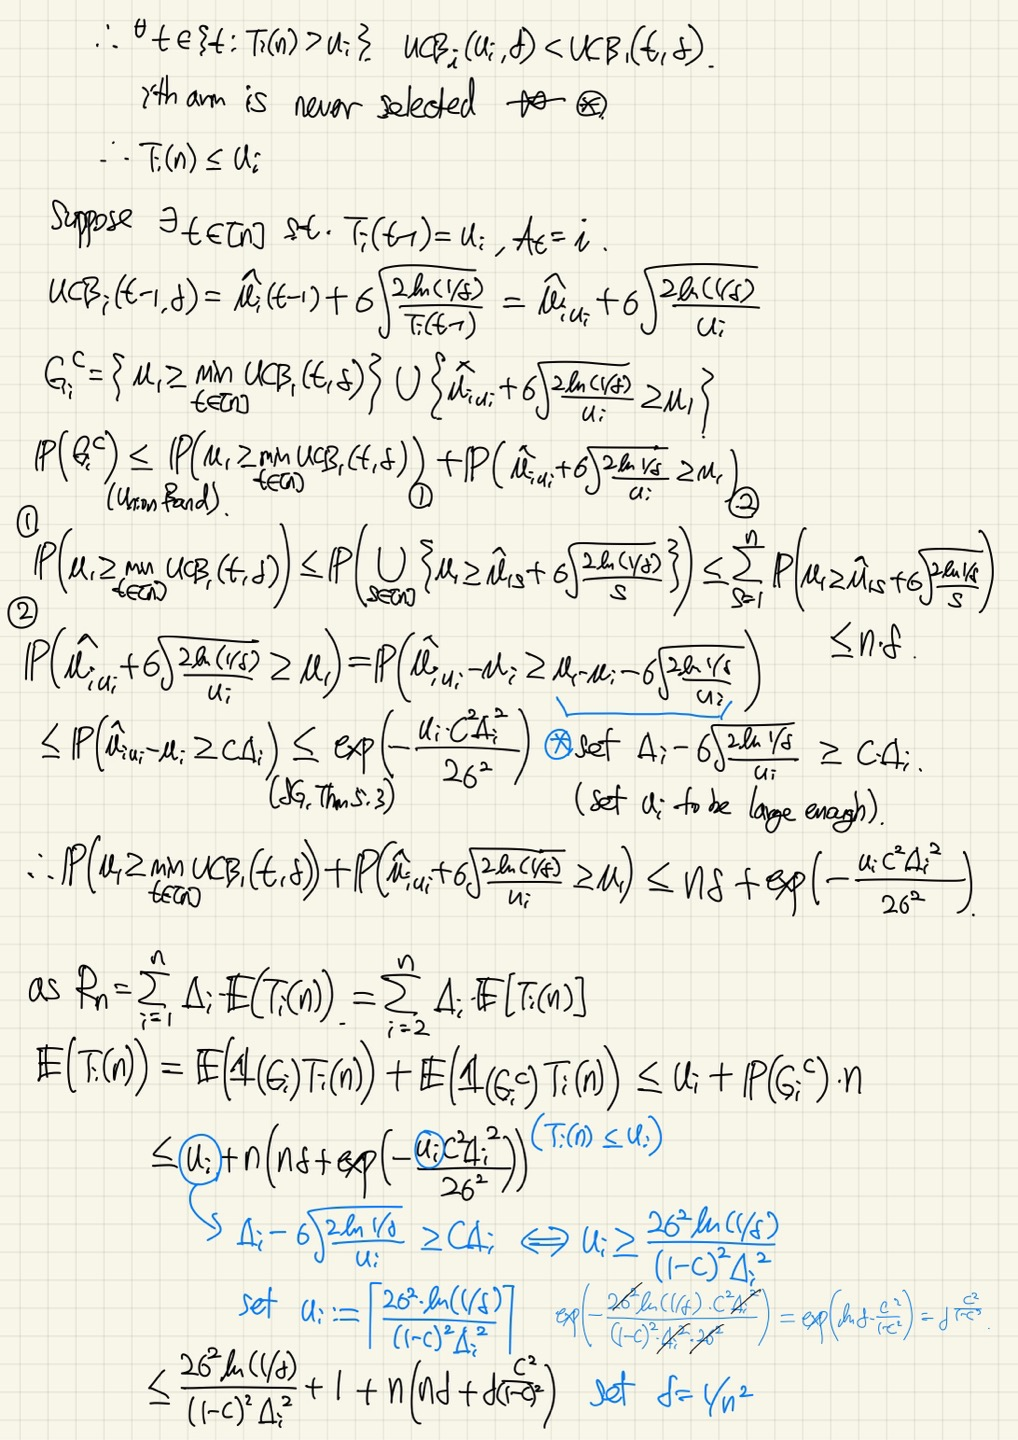 ∴ ∀t∈{t: Tᵢ(n)>uᵢ}. UCBᵢ(uᵢ,δ) < UCB₁(t,δ).
i'th arm is never selected ⊛
∴ Tᵢ(n) ≤ uᵢ
Suppose ∃t∈[n] s.t. Tᵢ(t-1)=uᵢ, Aₜ=i.
UCBᵢ(t-1,δ) = μ̂ᵢ(t-1) + σ√(2ln(1/δ)/Tᵢ(t-1)) = μ̂ᵢᵤᵢ + σ√(2ln(1/δ)/uᵢ)
Gᵢᶜ = {μ₁ ≥ min_{t∈[n]} UCB₁(t,δ)} ∪ {μ̂ᵢᵤᵢ + σ√(2ln(1/δ)/uᵢ) ≥ μ₁}
ℙ(Gᵢᶜ) ≤ ℙ(μ₁ ≥ min_{t∈[n]} UCB₁(t,δ)) ① + ℙ(μ̂ᵢᵤᵢ + σ√(2ln 1/δ / uᵢ) ≥ μ₁) ②
(Union Band).
①
ℙ(μ₁ ≥ min_{t∈[n]} UCB₁(t,δ)) ≤ ℙ(∪_{s∈[n]} {μ₁ ≥ μ̂₁ₛ + σ√(2ln(1/δ)/s)}) ≤ Σ_{s=1}^{n} ℙ(μ₁ ≥ μ̂₁ₛ + σ√(2ln 1/δ / s))
≤ n·δ.
②
ℙ(μ̂ᵢᵤᵢ + σ√(2ln(1/δ)/uᵢ) ≥ μ₁) = ℙ(μ̂ᵢᵤᵢ - μᵢ ≥ μ₁ - μᵢ - σ√(2ln 1/δ / uᵢ))
≤ ℙ(μ̂ᵢᵤᵢ - μᵢ ≥ cΔᵢ) ≤ exp(-uᵢ·c²Δᵢ²/2σ²) ⊛ set Δᵢ - σ√(2ln 1/δ / uᵢ) ≥ c·Δᵢ.
(SG, Thm 5.3) (set uᵢ to be large enough).
∴ ℙ(μ₁ ≥ min_{t∈[n]} UCB₁(t,δ)) + ℙ(μ̂ᵢᵤᵢ + σ√(2ln(1/δ)/uᵢ) ≥ μ₁) ≤ nδ + exp(-uᵢc²Δᵢ²/2σ²).
as Rₙ = Σ_{i=1}^{n} Δᵢ·𝔼(Tᵢ(n)). = Σ_{i=2}^{n} Δᵢ·𝔼[Tᵢ(n)]
𝔼(Tᵢ(n)) = 𝔼(𝟙(Gᵢ)Tᵢ(n)) + 𝔼(𝟙(Gᵢᶜ)Tᵢ(n)) ≤ uᵢ + ℙ(Gᵢᶜ)·n
≤ uᵢ + n(nδ + exp(-uᵢc²Δᵢ²/2σ²)) (Tᵢ(n) ≤ uᵢ)
Δᵢ - σ√(2ln 1/δ / uᵢ) ≥ cΔᵢ ⟺ uᵢ ≥ 2σ²ln(1/δ)/(1-c)²Δᵢ²
set uᵢ := ⌈2σ²·ln(1/δ)/(1-c)²Δᵢ²⌉ exp(-2σ²ln(1/δ)·c²Δᵢ²/(1-c)²·Δᵢ²·2σ²) = exp(lnδ·c²/(1-c)²) = δ^{c²/(1-c)²}.
≤ 2σ²ln(1/δ)/(1-c)²Δᵢ² + 1 + n(nδ + δ^{c²/(1-c)²}) set δ = 1/n²